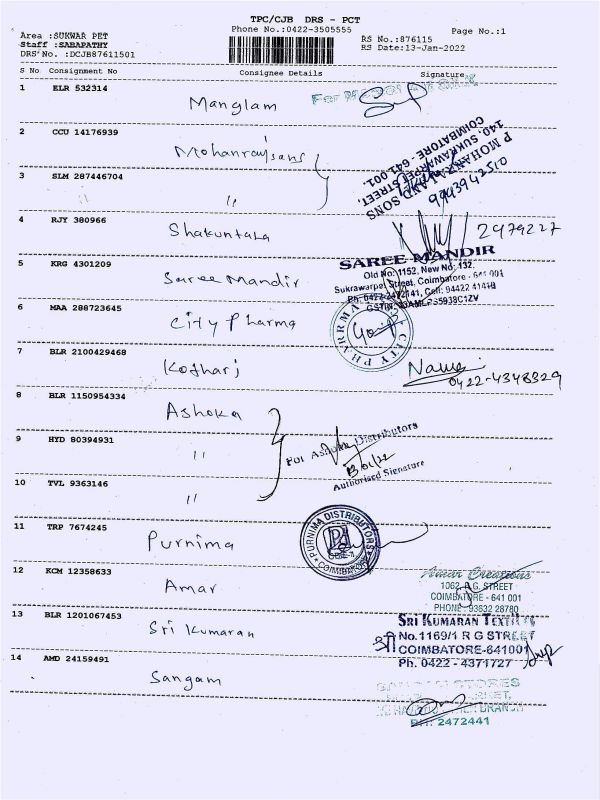 TPC/CJB DRS - PCT
Phone No.:0422-3505555
Area :SUKWAR PET
RS No.:876115
Page No.:1
Staff :SABAPATHY
RS Date:13-Jan-2022
DRS No. :DCJB87611501
S No Consignment No Consignee Details Signature
1 ELR 532314
Manglam
2 CCU 14176939
Mohanraj sans
P MOHANRAJ AND SONS
140, SUKRAWARPET STREET,
COIMBATORE - 641 001.
9943942510
3 SLM 287446704
"
4 RJY 380966
Shakuntala
2479227
5 KRG 4301209
Saree Mandir
SAREE MANDIR
Old No: 1152, New No: 132,
Sukrawarpet Street, Coimbatore - 641 001
6 MAA 288723645
City Pharma
CITY PHARRMA
7 BLR 2100429468
Kothari
0422-4348329
8 BLR 1150954334
Ashoka
9 HYD 80394931
"
For Ashoka Distributors
Authorised Signature
10 TVL 9363146
"
11 TRP 7674245
Purnima
PURNIMA DISTRIBUTORS
COIMBATORE
12 KCM 12358633
Amar
Amar Creations
1062, R.G. STREET
COIMBATORE - 641 001
PHONE : 93632 28780
13 BLR 1201067453
Sri Kumaran
SRI KUMARAN TEXTILES
No.1169/1 R G STREET
COIMBATORE-641001
Ph. 0422 - 4371727
14 AMD 24159491
Sangam
STORES
PH: 2472441